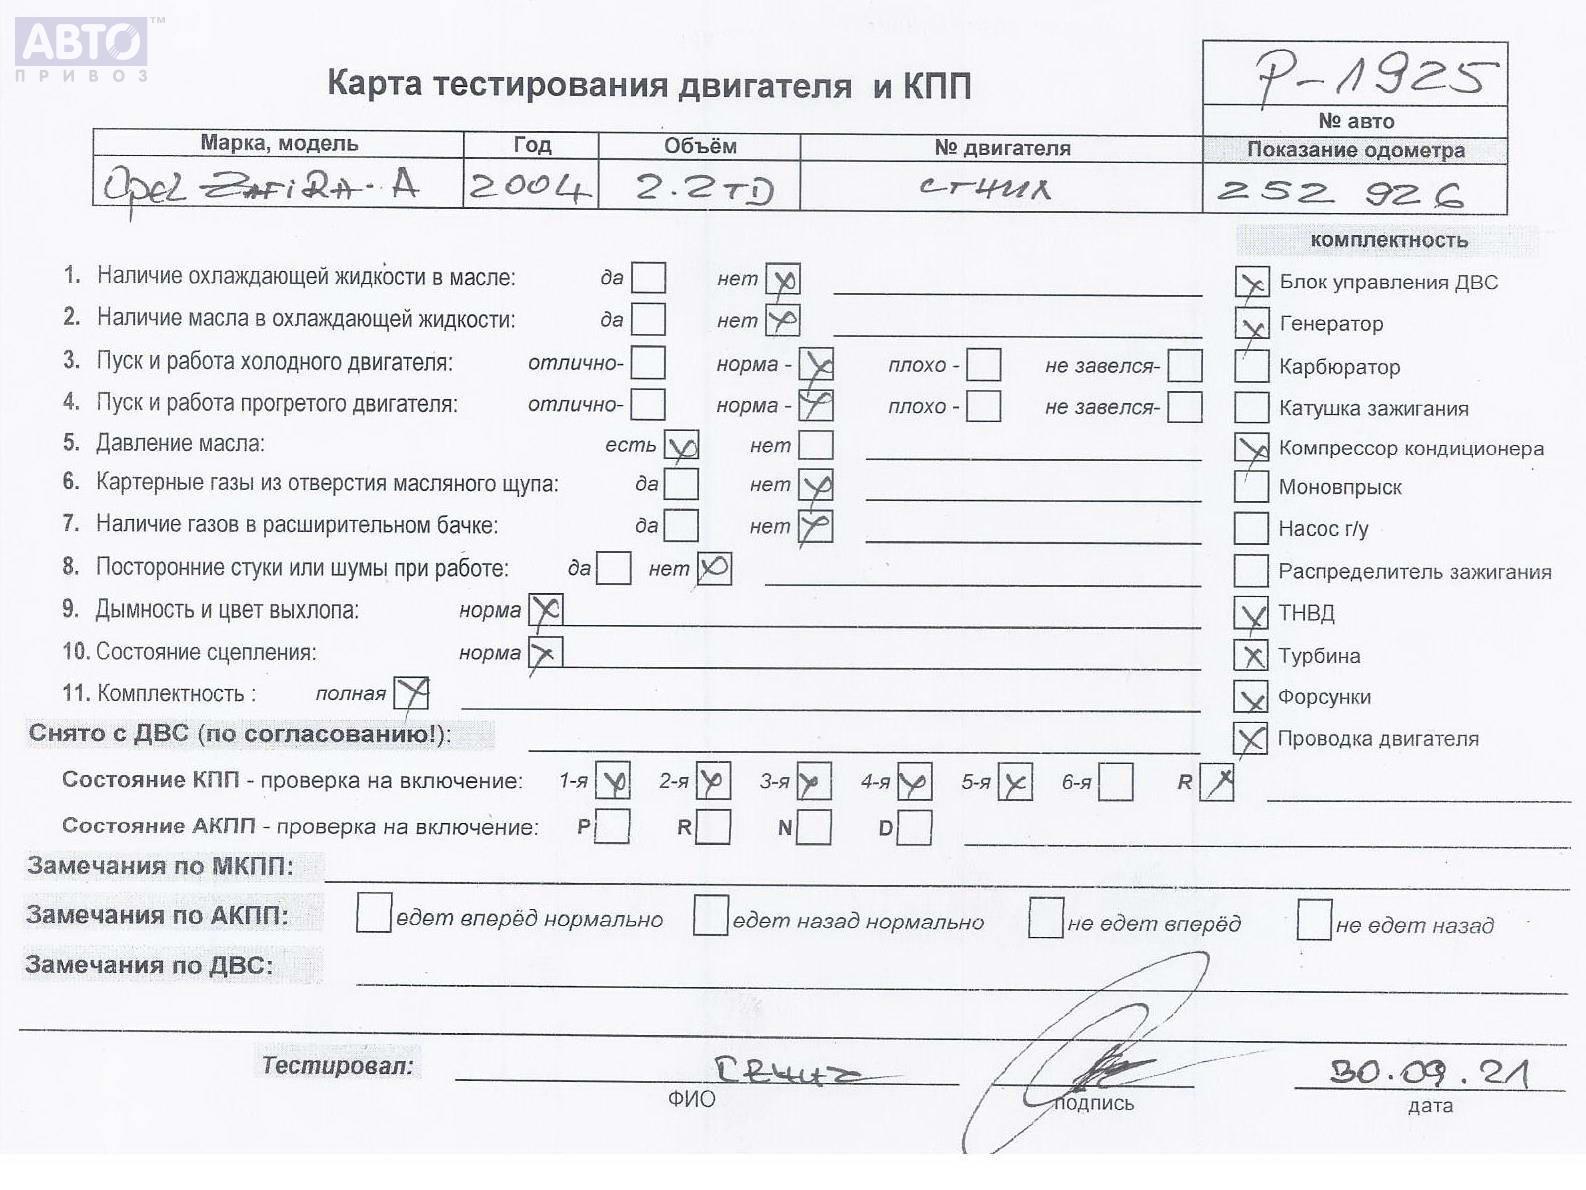 АВТО™
ПРИВОЗ
Карта тестирования двигателя и КПП
P-1925
№ авто
Марка, модель Год Объём № двигателя Показание одометра
Opel ZAFiRA-A 2004 2.2TD 252 926
комплектность
1. Наличие охлаждающей жидкости в масле: да нет Блок управления ДВС
2. Наличие масла в охлаждающей жидкости: да нет Генератор
3. Пуск и работа холодного двигателя: отлично- норма - плохо - не завелся- Карбюратор
4. Пуск и работа прогретого двигателя: отлично- норма - плохо - не завелся- Катушка зажигания
5. Давление масла: есть нет Компрессор кондиционера
6. Картерные газы из отверстия масляного щупа: да нет Моновпрыск
7. Наличие газов в расширительном бачке: да нет Насос г/у
8. Посторонние стуки или шумы при работе: да нет Распределитель зажигания
9. Дымность и цвет выхлопа: норма ТНВД
10. Состояние сцепления: норма Турбина
11. Комплектность : полная Форсунки
Снято с ДВС (по согласованию!): Проводка двигателя
Состояние КПП - проверка на включение: 1-я 2-я 3-я 4-я 5-я 6-я R
Состояние АКПП - проверка на включение: P R N D
Замечания по МКПП:
Замечания по АКПП: едет вперёд нормально едет назад нормально не едет вперёд не едет назад
Замечания по ДВС:
Тестировал: 30.09.21
ФИО подпись дата